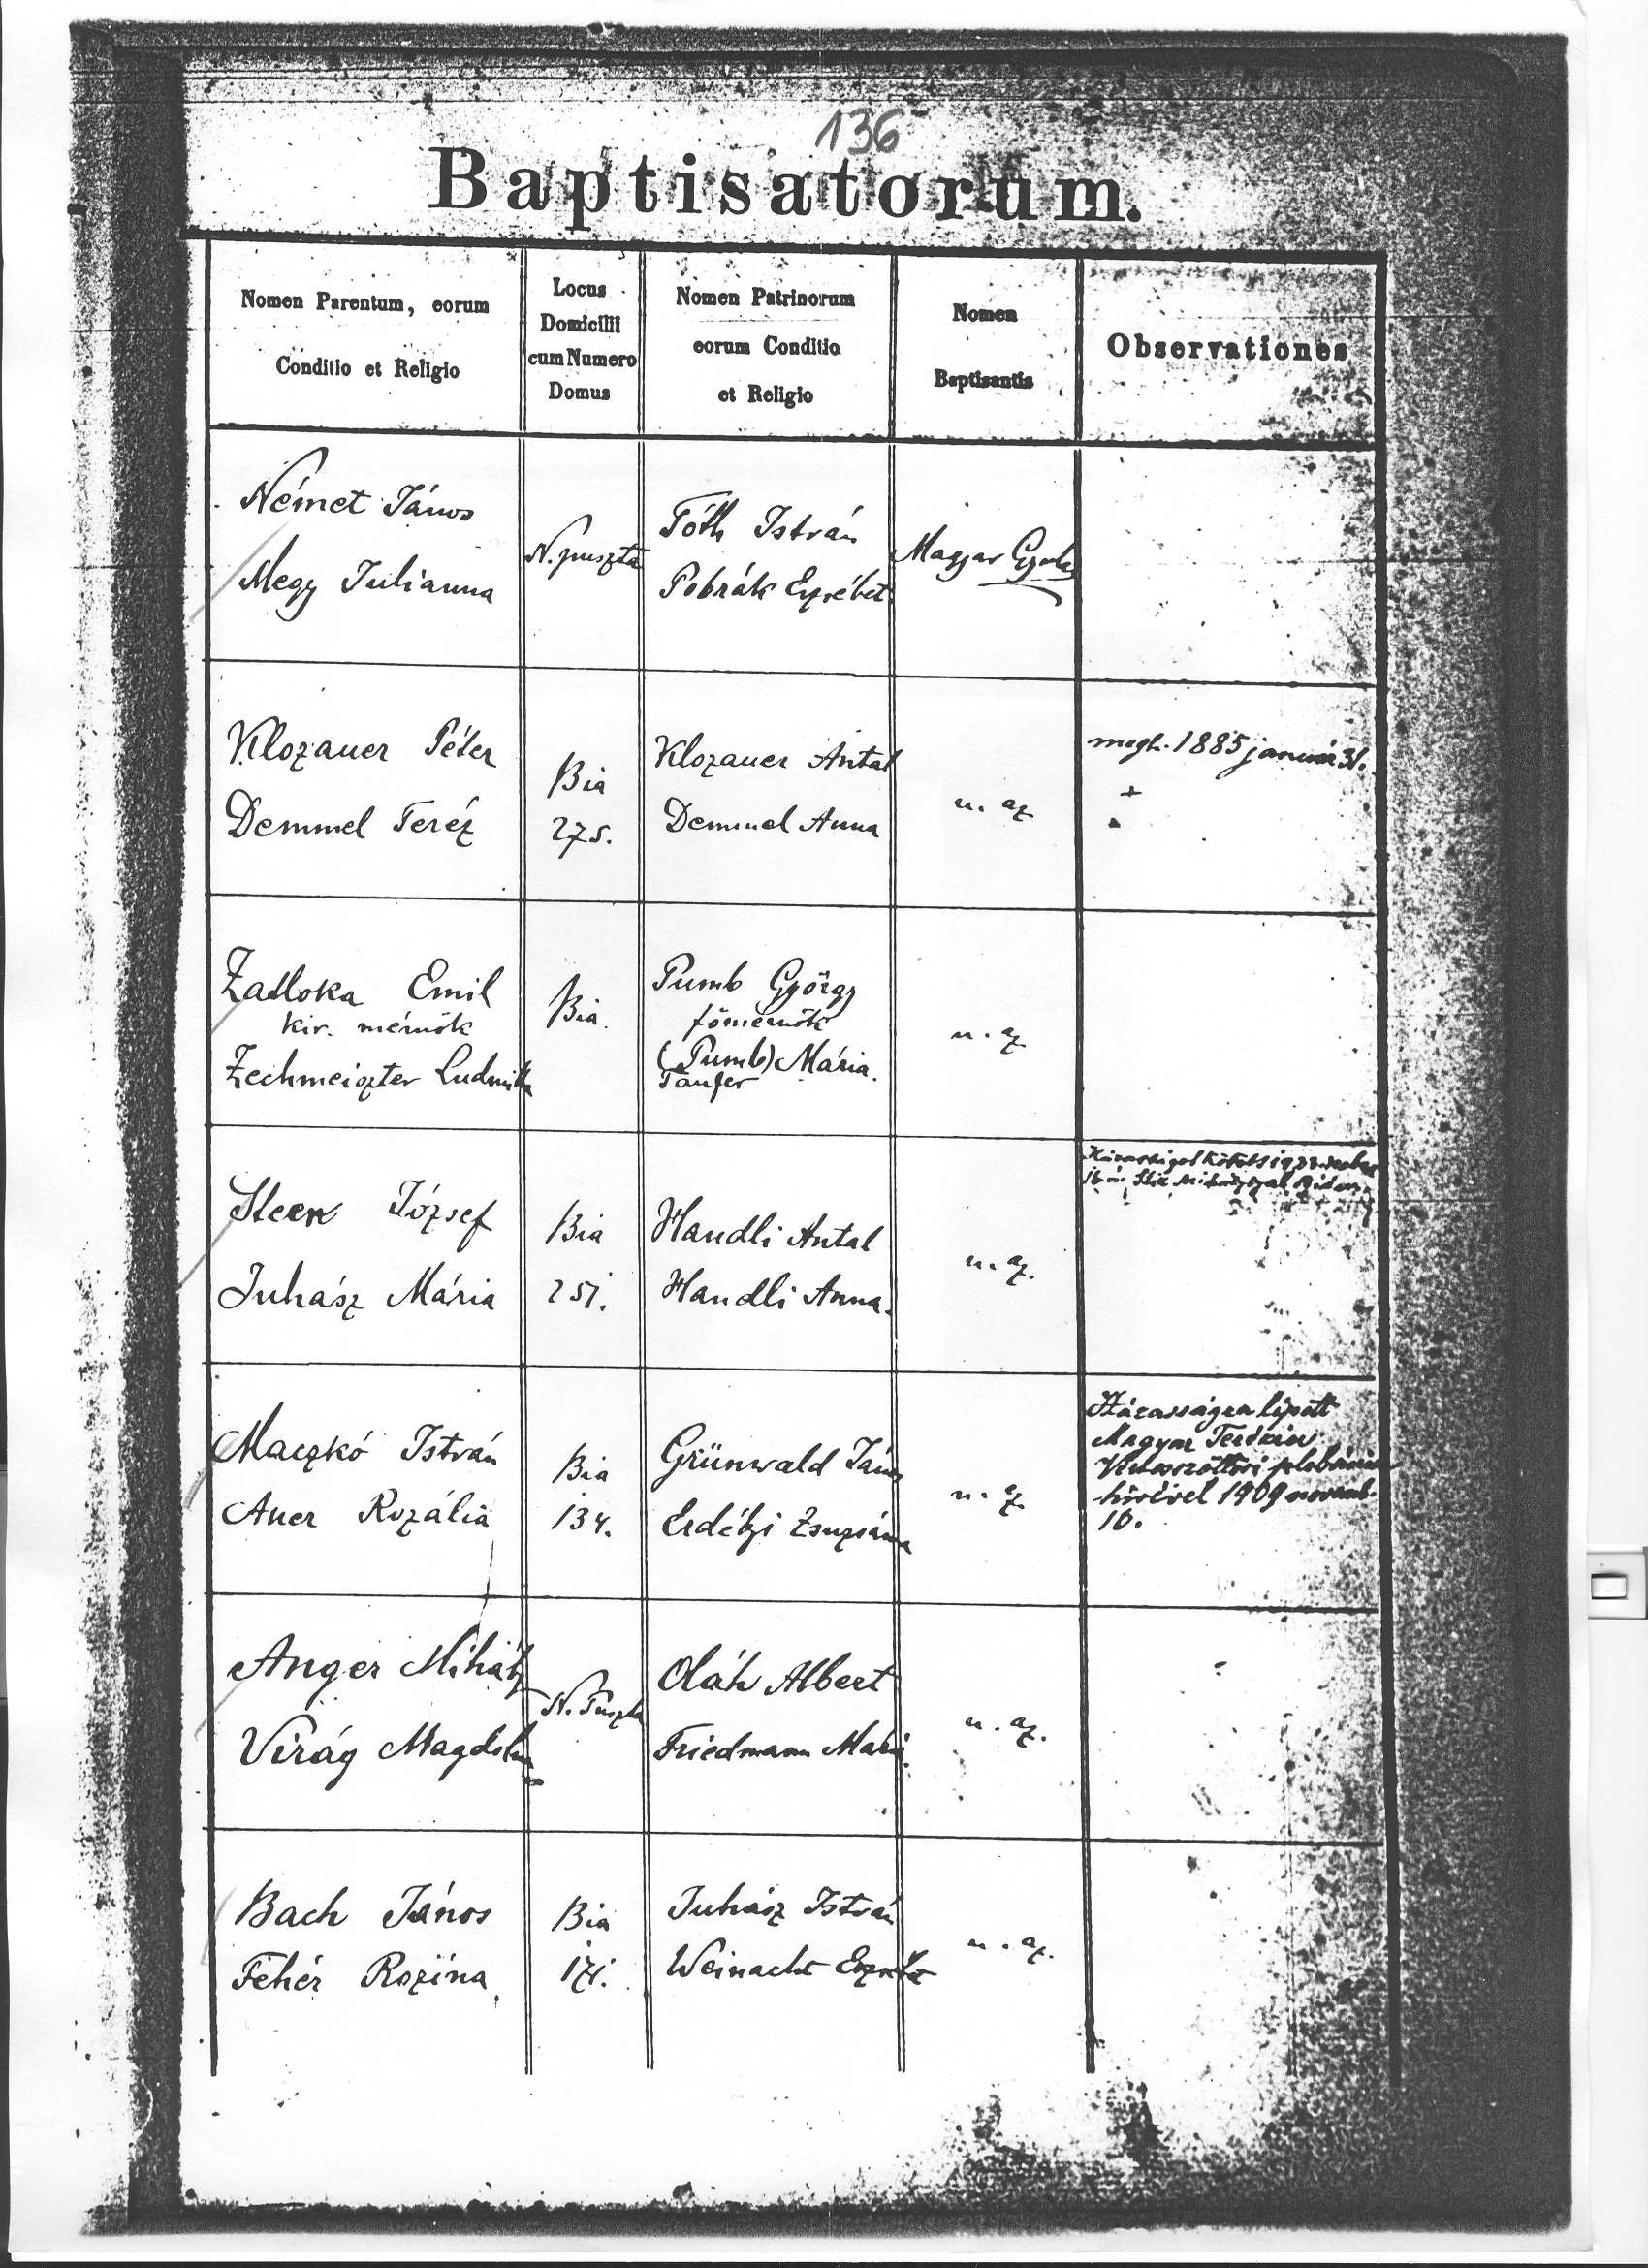 136
Baptisatorum.
Nomen Parentum, eorum
Conditio et Religio
Locus
Domicilii
cum Numero
Domus
Nomen Patrinorum
eorum Conditio
et Religio
Nomen
Baptisantis
Observationes
Német János
Megy Julianna
N. puszta
Tóth István
Pobrák Erzsébet
Magyar
Klozauer Péter
Demmel Teréz
Bia
275.
Klozauer Antal
Demmel Anna
u. az
megh. 1885 január 31.
+
Zadloka Emil
kir. mérnök
Zechmeiszter Ludmilla
Bia.
Pumb György
főmérnök
(Pumb) Mária.
Taufer
u. az
Steer József
Juhász Mária
Bia
251.
Handli Antal
Handli Anna.
u. az.
Maczkó István
Auer Rozália
Bia
134.
Grünwald János
Erdélyi Zsuzsánna
u. az
Házasságra lépett
Magyar
hírével 1909 novemb.
16.
Anger Mihály
Virág Magdolna
N. Puszta
Oláh Albert
Friedmann Mária
u. az.
Bach János
Fehér Rozina
Bia
171.
Juhász István
Weinacht Erzsébet
u. az.